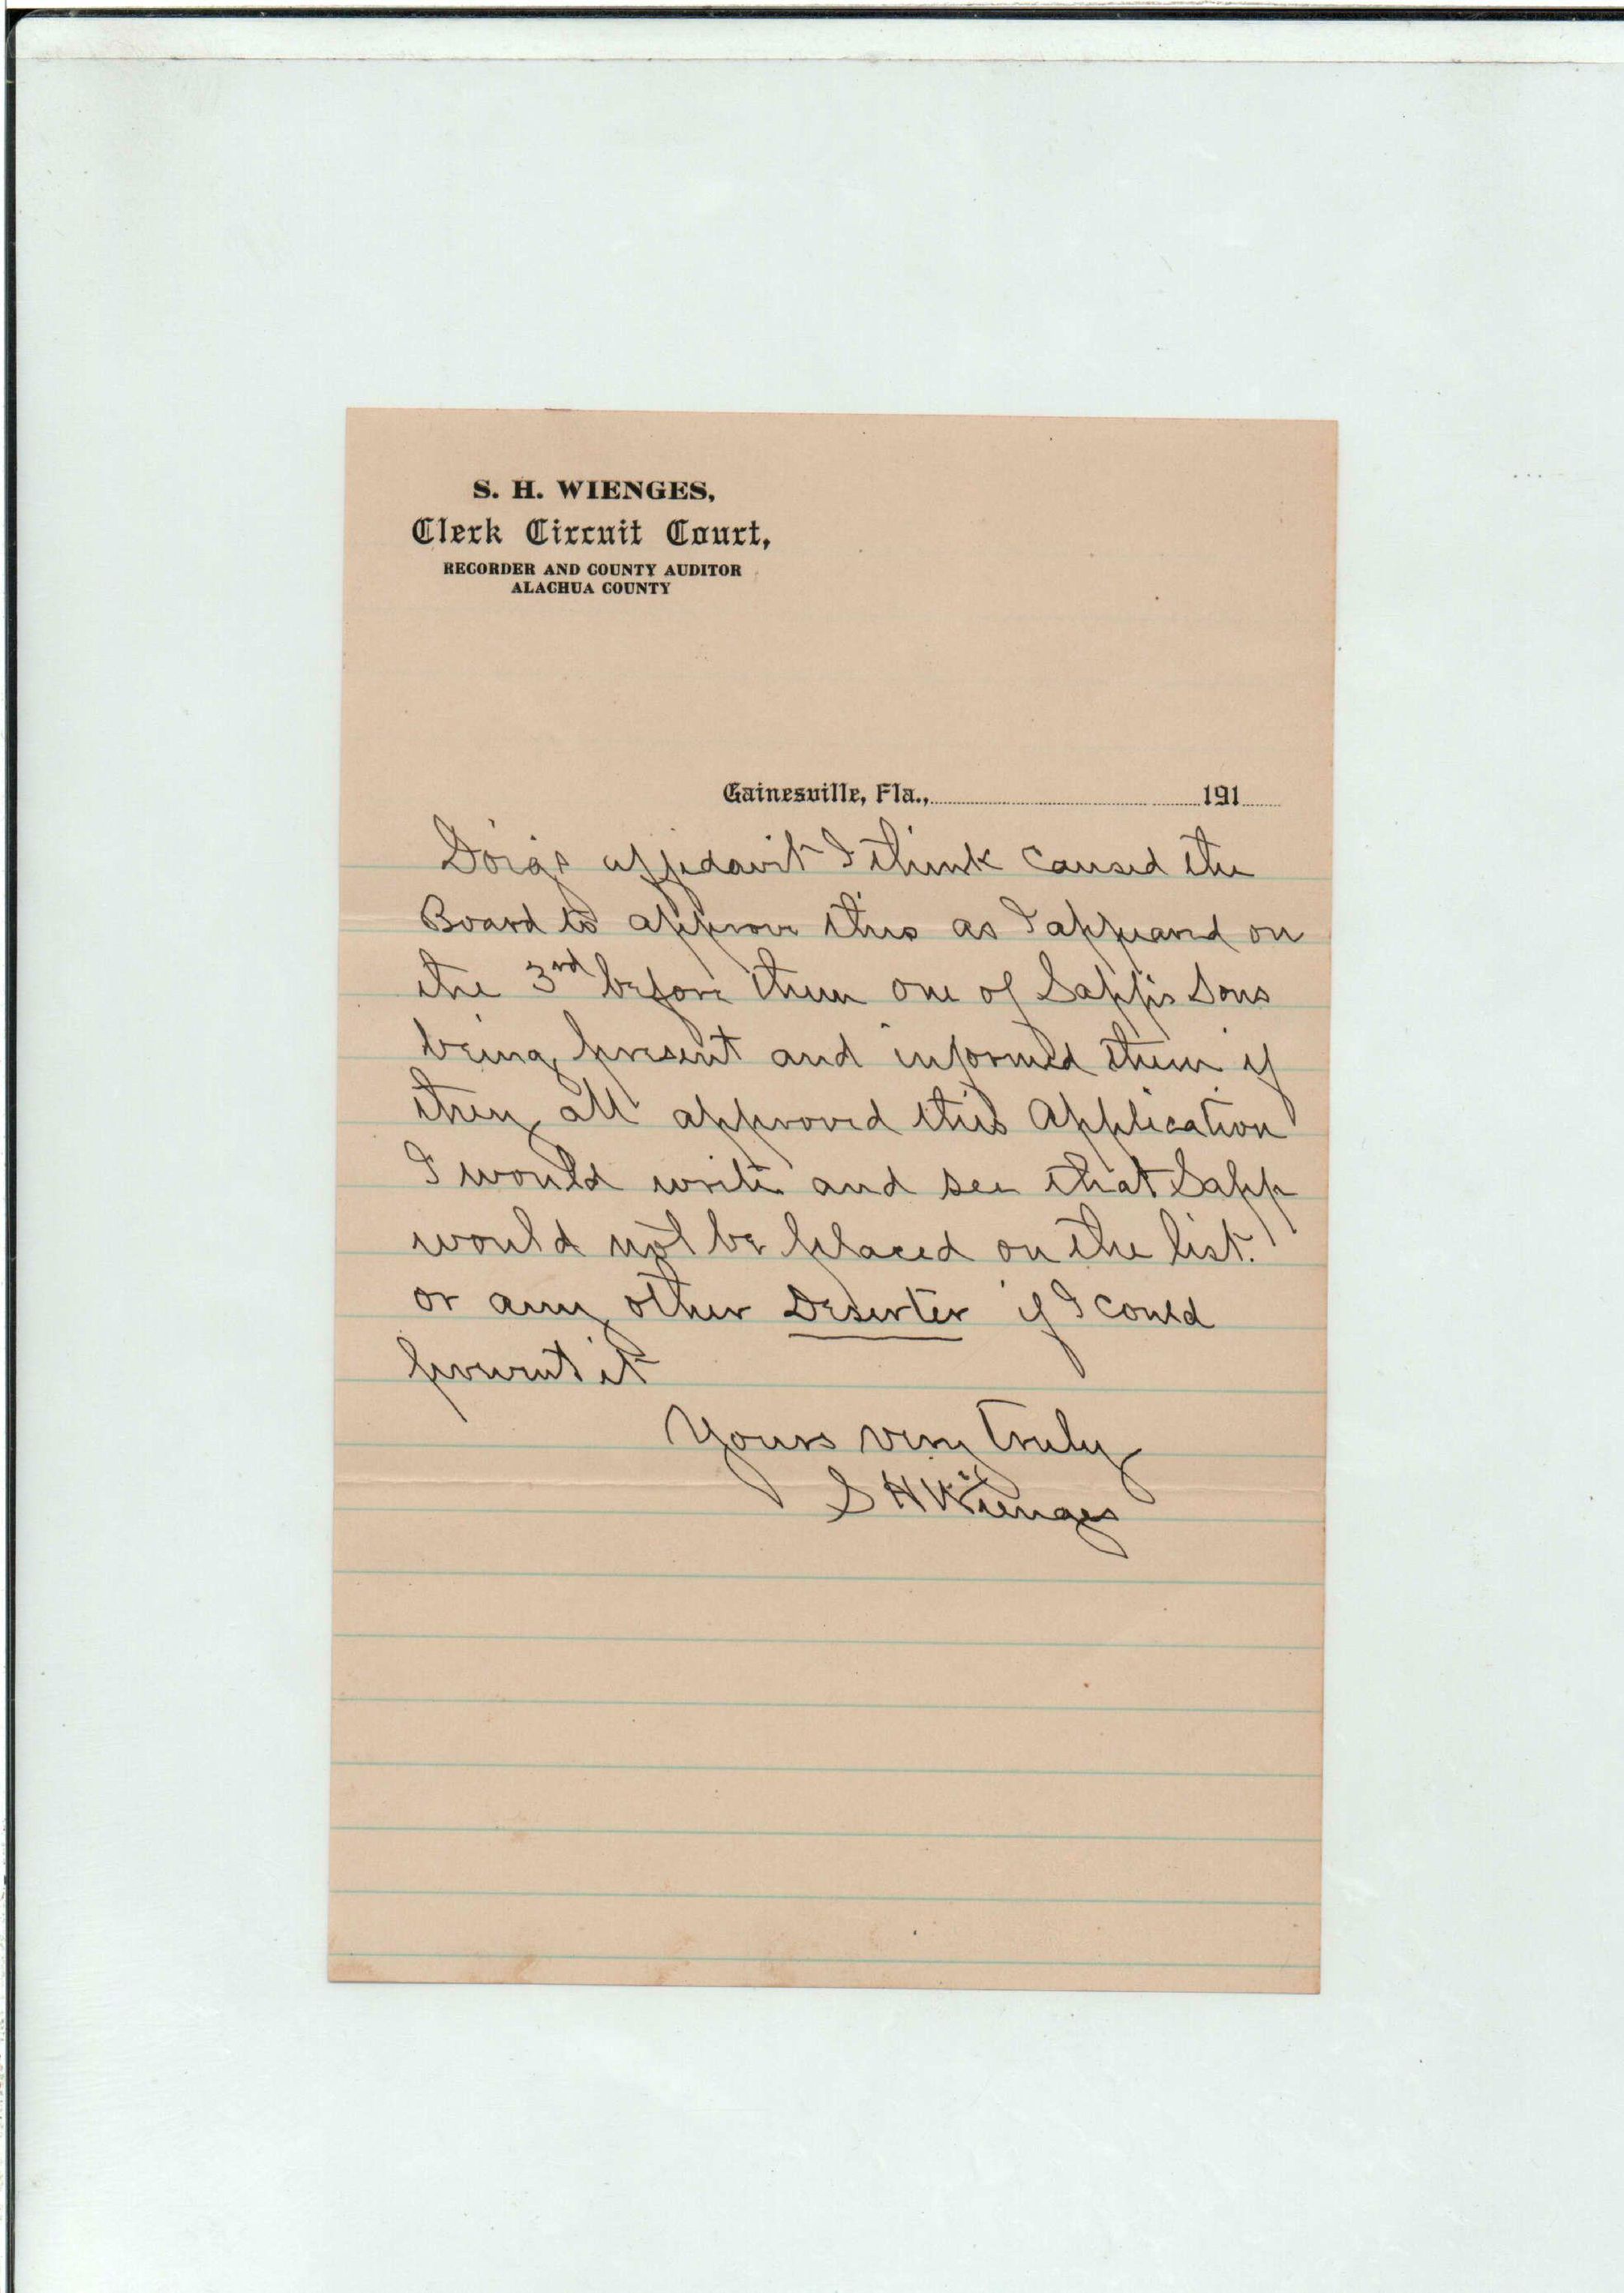 S. H. WIENGES,
Clerk Circuit Court,
RECORDER AND COUNTY AUDITOR
ALACHUA COUNTY
Gainesville, Fla., 191
Doig's affidavit I think caused the
Board to approve this as I appeared on
the 3rd before them one of Sapp's Sons
being present and informed them if
they all approved this Application
I would write and see that Sapp
would not be placed on the list.
or any other Deserter if I could
prevent it
Yours very truly
S H Wienges